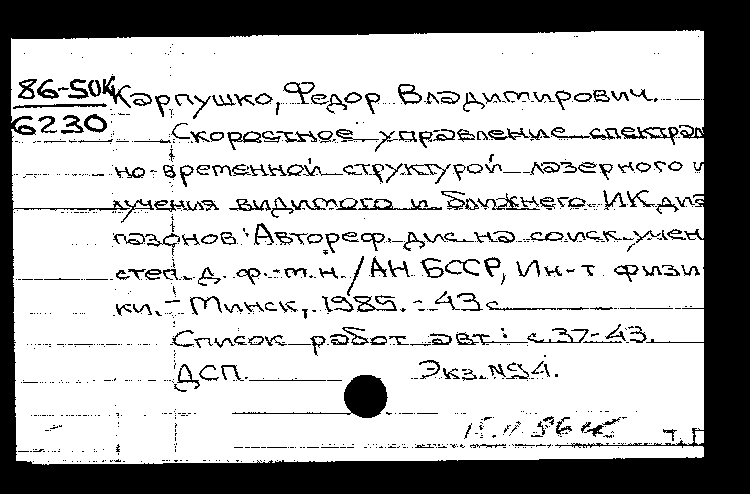 86-50к
6230
Карпушко, Федор Владимирович.
Скоростное управление спектраль
но-временной структурой лазерного и
лучения видимого и ближнего ИК диа
пазонов: Автореф. дис. на соиск. учен
степ. д. ф.-т.н. / АН БССР, Ин-т физи
ки. - Минск, 1985. - 43 с
Список работ авт: с.37-43.
ДСП. Экз. №94.
15.11.86
Т.Г